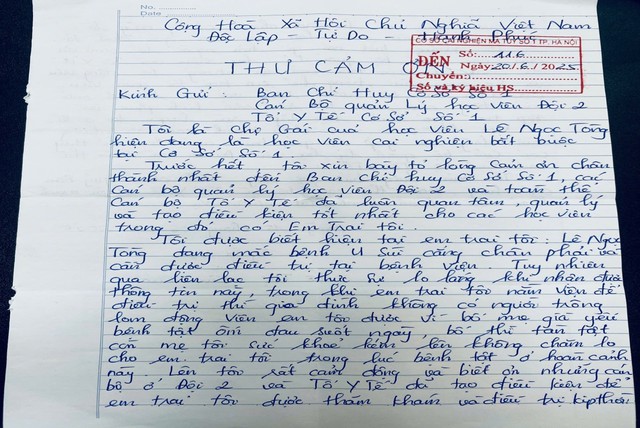 No.
Date
Cộng Hoà Xã Hội Chủ Nghĩa Việt Nam
Độc Lập - Tự Do - Hạnh Phúc
CƠ SỞ CAI NGHIỆN MA TÚY SỐ 1 TP. HÀ NỘI
ĐẾN Số: 116
Ngày: 20/6/2025
Chuyển:
Số và ký hiệu HS
THƯ CẢM ƠN
Kính Gửi: Ban Chỉ Huy Cơ Sở Số 1
Cán Bộ quản Lý học viên Đội 2
Tổ Y Tế Cơ Sở Số 1
Tôi là Chị Gái của học viên Lê Ngọc Tòng
hiện đang là học viên cai nghiện bắt buộc
tại Cơ Sở Số 1.
Trước hết tôi xin bày tỏ lòng cảm ơn chân
thành nhất đến Ban Chỉ huy Cơ Sở Số 1, các
Cán bộ quản lý học viên Đội 2 và toàn thể
Cán bộ Tổ Y Tế đã luôn quan tâm, quản lý
và tạo điều kiện tốt nhất cho các học viên
trong đó có Em Trai tôi.
Tôi được biết hiện tại em trai tôi: Lê Ngọc
Tòng đang mắc bệnh U Sùi cẳng chân phải và
cần được điều trị tại bệnh viện. Tuy nhiên
qua liên lạc tôi thực sự lo lắng khi nhận được
thông tin này, trong khi em trai tôi nằm viện để
điều trị thì gia đình không có người trông
lom động viên em tôi được vì bố mẹ già yếu
bệnh tật ốm đau suốt ngày, bố thì tàn tật
còn mẹ tôi sức khoẻ kém lên không chăm lo
cho em trai tôi trong lúc bệnh tật ở hoàn cảnh
này. Lên tôi rất cảm động và biết ơn những cán
bộ ở Đội 2 và Tổ Y Tế đã tạo điều kiện để
em trai tôi được thăm khám và điều trị kịp thời